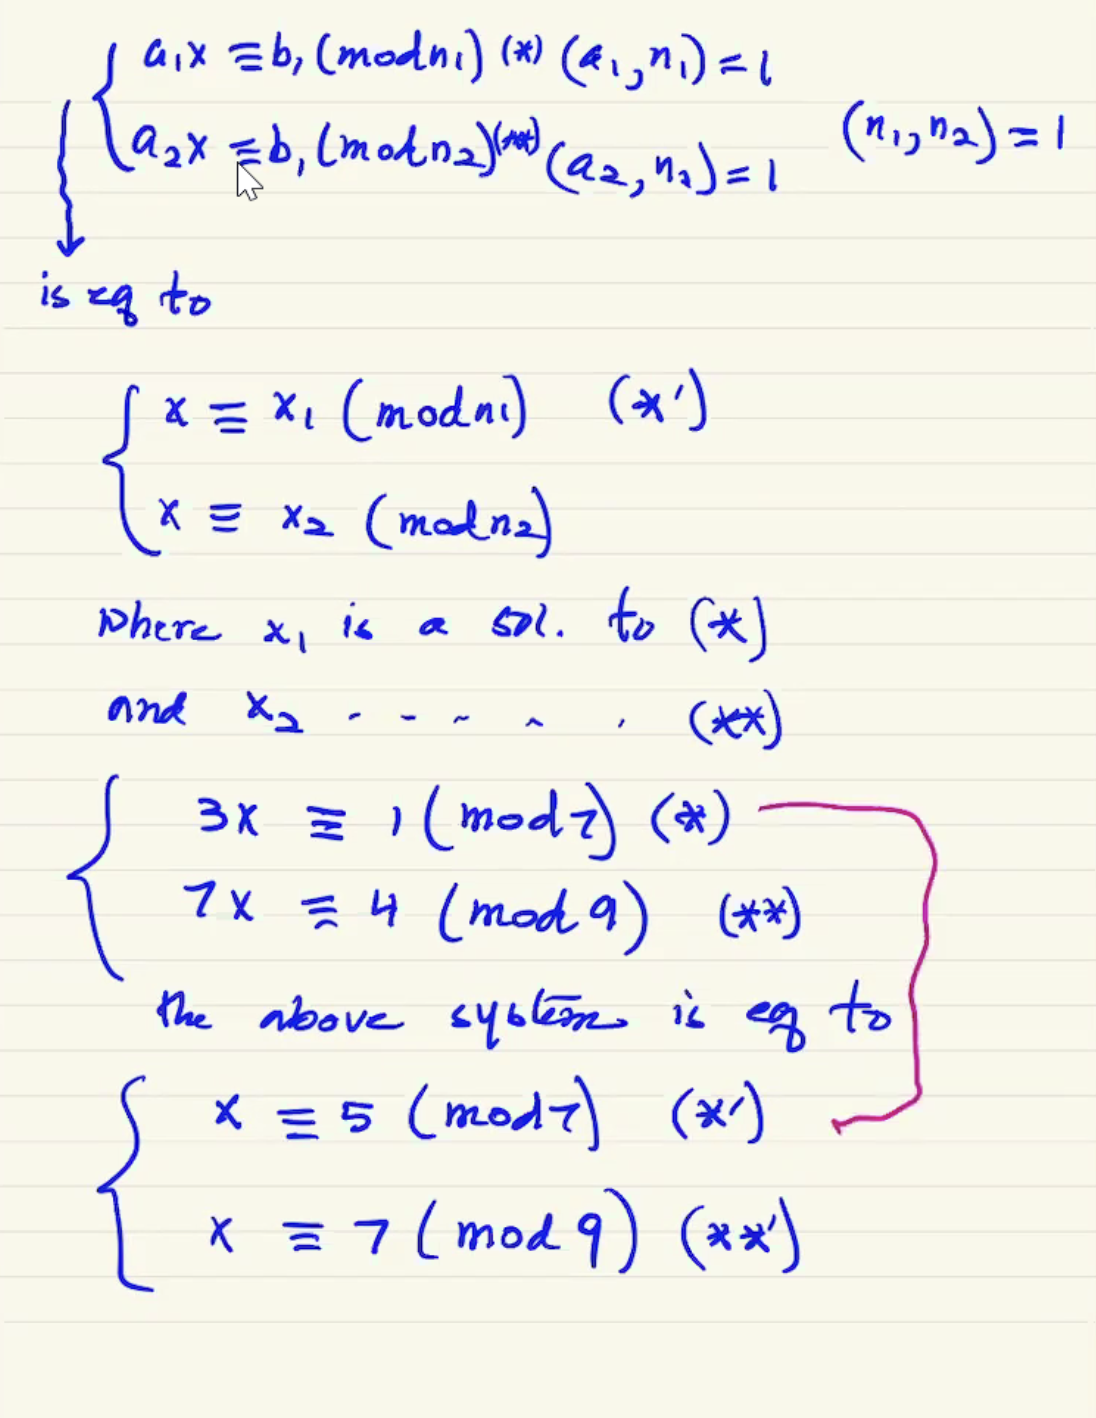 a₁x ≡ b₁ (mod n₁) (*) (a₁, n₁) = 1
a₂x ≡ b₁ (mod n₂) (**) (a₂, n₂) = 1 (n₁, n₂) = 1
is eq to
x ≡ x₁ (mod n₁) (*')
x ≡ x₂ (mod n₂)
where x₁ is a sol. to (*)
and x₂ - - - - . (**)
3x ≡ 1 (mod 7) (*)
7x ≡ 4 (mod 9) (**)
the above system is eq to
x ≡ 5 (mod 7) (*')
x ≡ 7 (mod 9) (**')